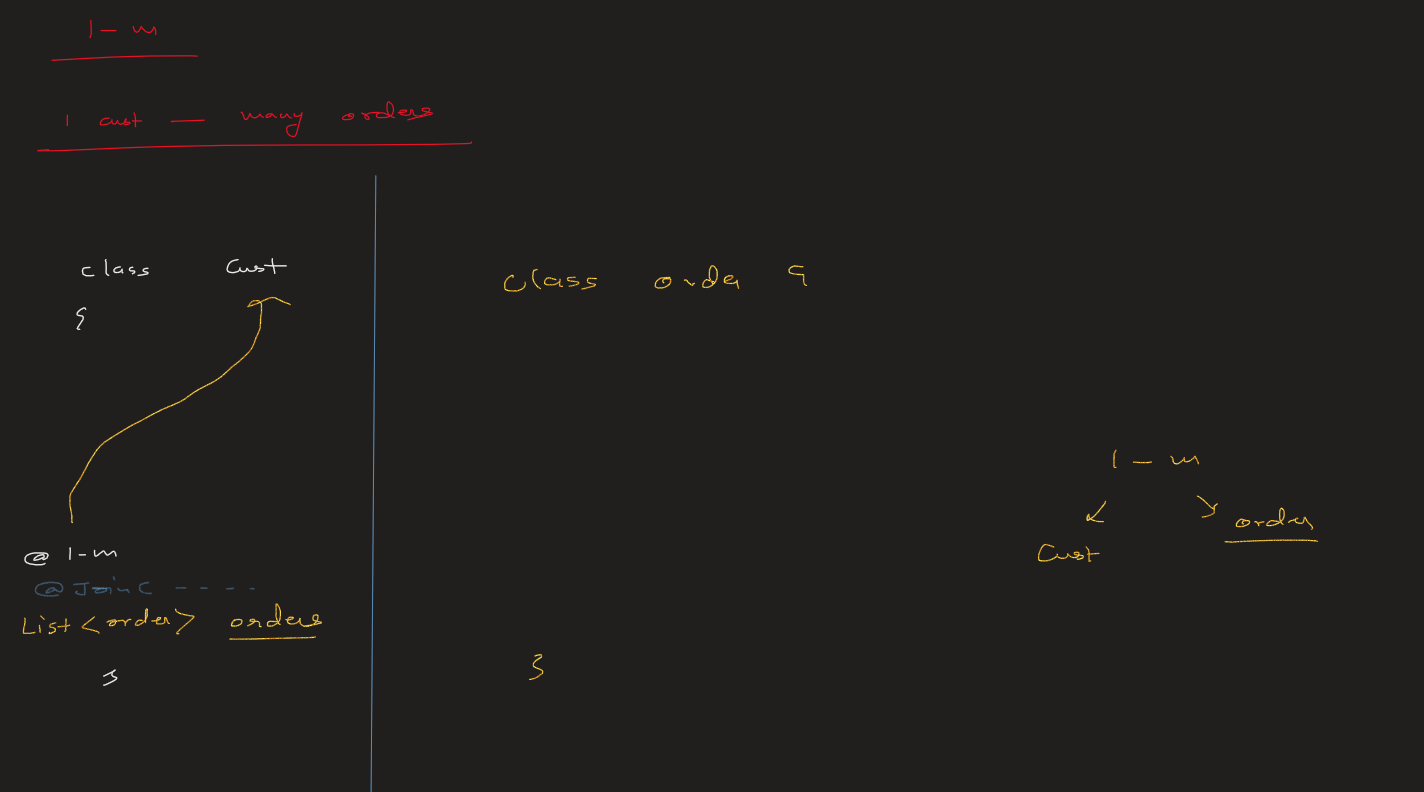 1 - m
1 cust — many orders
class Cust
{
@ 1-m
@ JoinC - - - -
List <order> orders
}
class order {
}
1 - m
Cust order